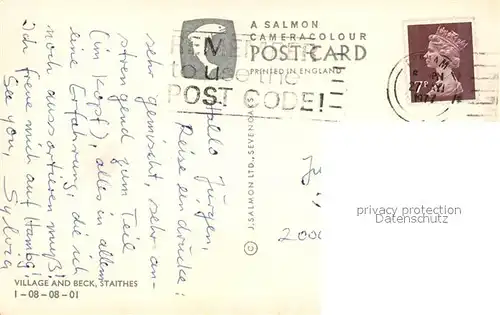 A SALMON
CAMERACOLOUR
POST CARD
PRINTED IN ENGLAND
REMEMBER
to use the
POST CODE!
1977
Hallo Jürgen,
Reiseeindrücke:
sehr gemischt, sehr an-
strengend zum Teil
(im Kopf), alles in allem
eine Erfahrung, die ich
noch aussortieren muß!
Ich freue mich auf Hambg!
See you, Sylvia
J. SALMON LTD., SEVENOAKS ©
2000
privacy protection
Datenschutz
VILLAGE AND BECK, STAITHES
1-08-08-01